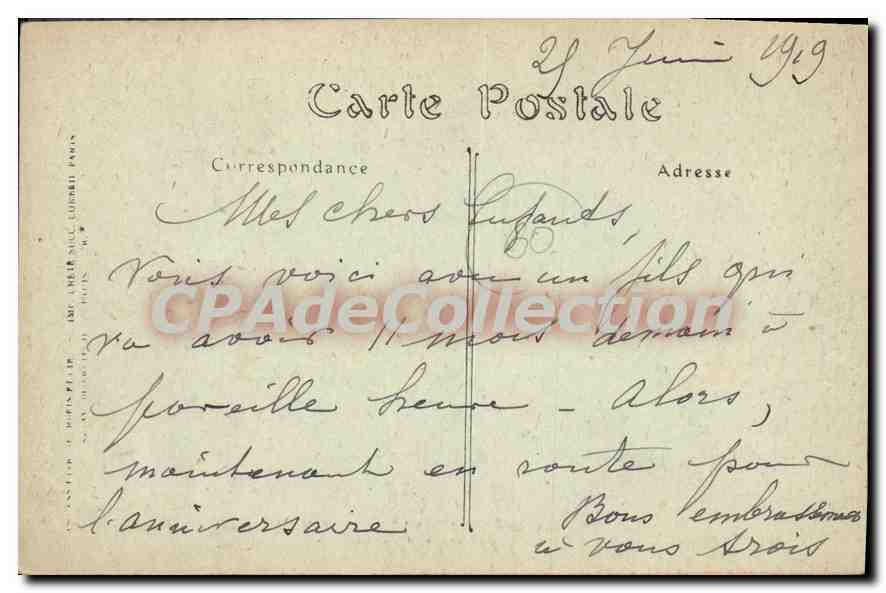 25 Juin 1919
Carte Postale
Correspondance
Adresse
Mes chers Enfants,
80
Vous voici avec un fils qui
CPAdeCollection.com
va avoir 11 mois demain à
pareille heure - Alors,
maintenant en route pour
l'anniversaire
Bons embrassements
à vous trois